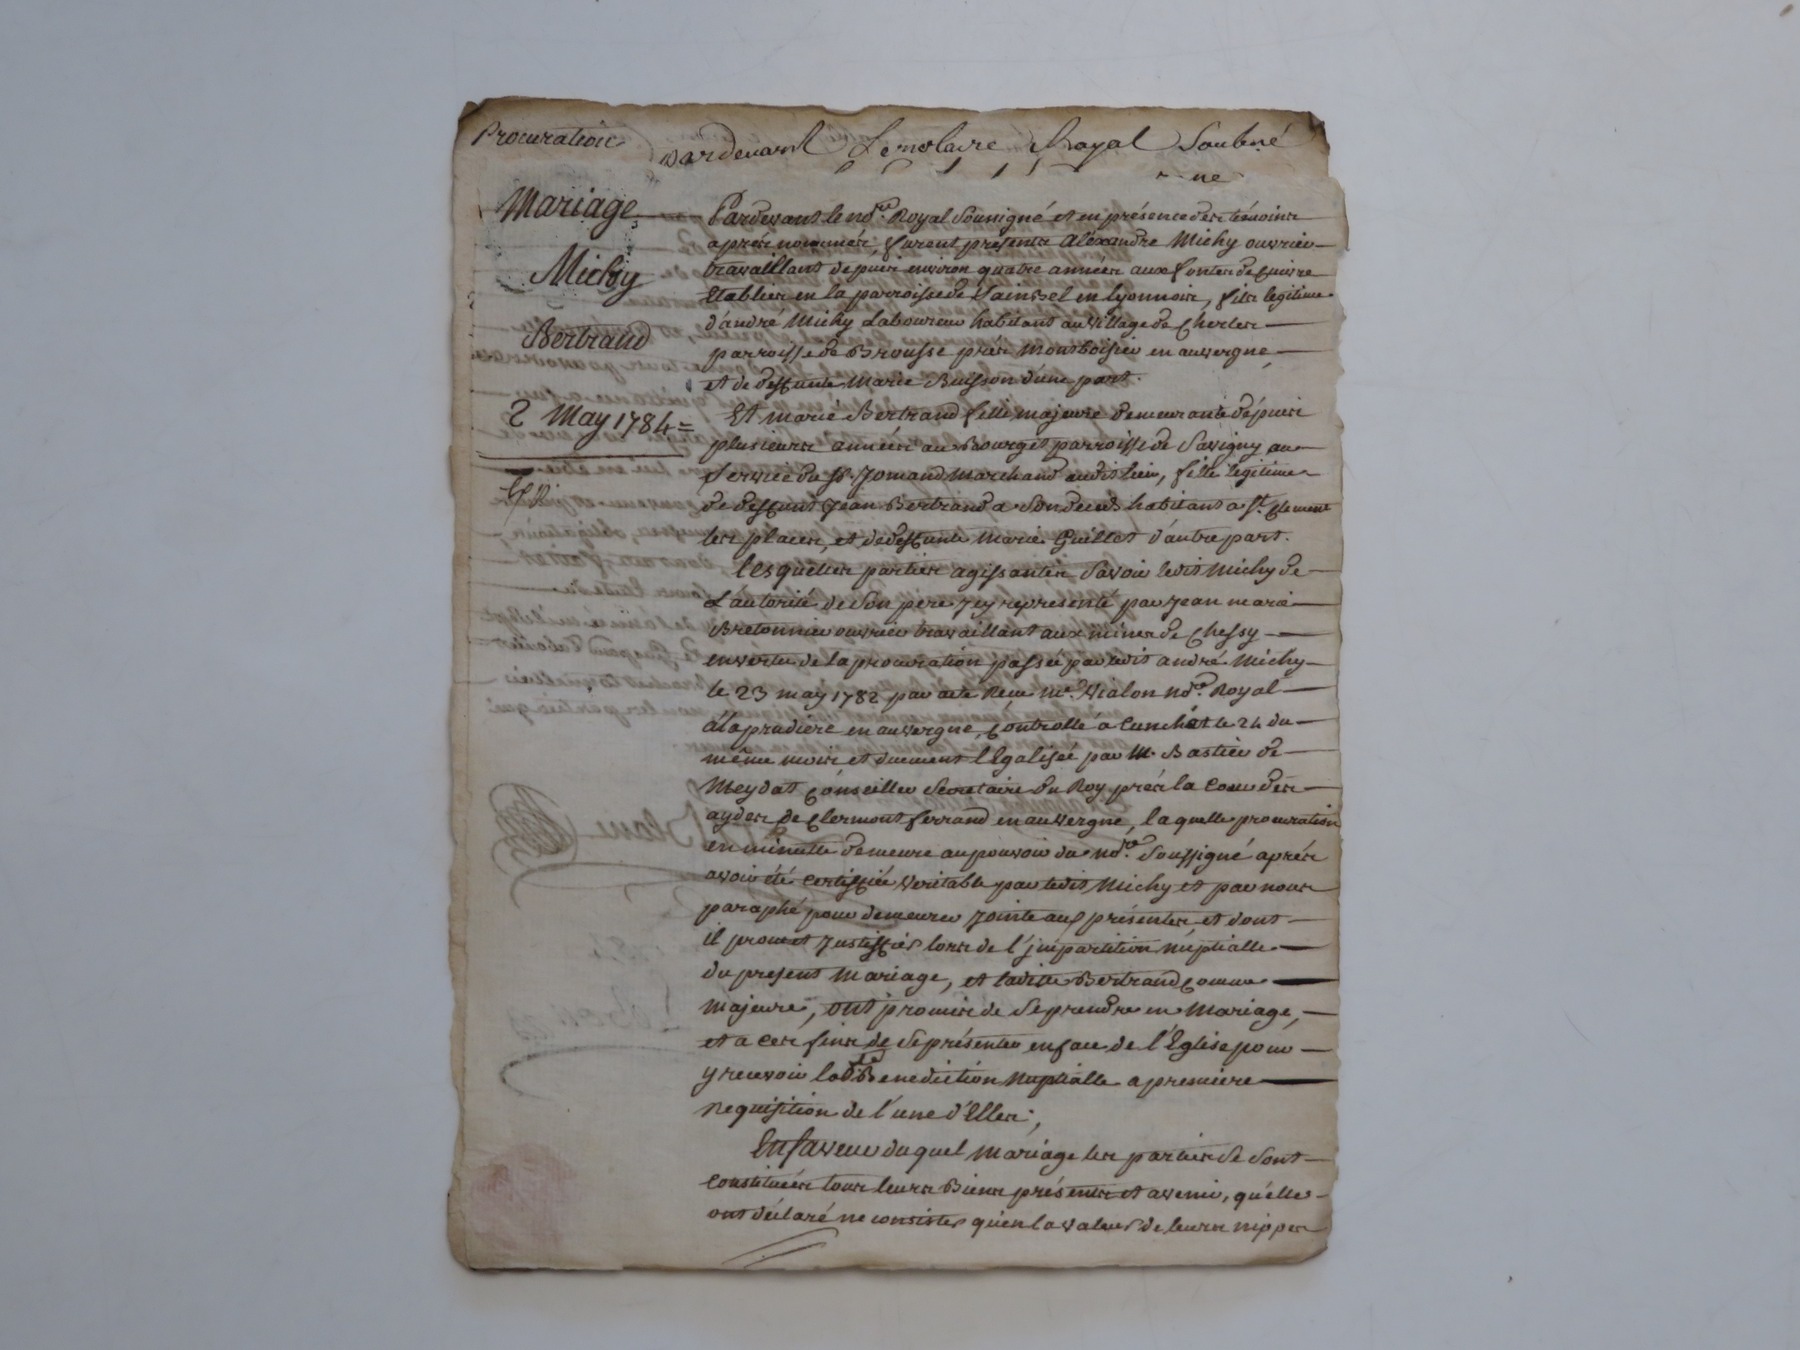 Procuration
Pardevant Le notaire Royal Soubné
ne
Mariage
Michy
Bertrand
2 May 1784 =
Pardevant le no.re Royal Soussigné et en présence des témoins
après nommés, furent présents Aléxandre Michy ouvrier
travaillant depuis environ quatre années aux fontes de Cuivre
Etablies en la parroisse de Sainbel en Lyonnois, fils legitime
d'andré Michy Laboureur habitant au village de Cherles
parroisse de Brousse près Montboisier en auvergne,
et de deffunte Marie Buisson d'une part.
Et marie Bertrand fille majeure demeurante dépuis
plusieurs années au Bourg et parroisse de Savigny au
service du Sr. Jomand Marchand audit lieu, fille legitime
de deffunt Jean Bertrand a son deceds habitant a St. Clement
les places, et de deffunte Marie Guillot d'autre part.
lesquelles parties agissantes savoir ledit Michy de
L'autorité de son pere Jcy representé par Jean marie
Bretonnier ouvrier travaillant aux mines de Chessy
en vertu de la procuration passée par ledit andré Michy
le 23 may 1782 par acte Reçu Me. Vialon no.re Royal
á la pradière en auvergne, Controllé á Cunchat le 24 du
même mois et duement Légalisée par M. Bastier de
Meydat Conseiller Secretaire du Roy près la Cour des
aydes de Clermont ferrand en auvergne, laquelle procuration
en minutte demeure au pouvoir du no.re Soussigné après
avoir été certiffiée veritable par ledit Michy et par nous
paraphé pour demeurer jointe aux présentes, et dont
il promet justiffier lors de l'jmpartition nuptialle
du present Mariage, et ladite Bertrand Comme
majeure, ont promis de se prendre en Mariage,
et a ces fins de se présenter en face de l'Eglise pour
y recevoir la de Benediction Nuptialle a premiere
requisition de l'une d'Elles;
En faveur duquel Mariage les parties se sont
Constituées tous leurs Biens présents et avenir, qu'elles
ont déclaré ne consister qu'en la valeur de leurs nippes